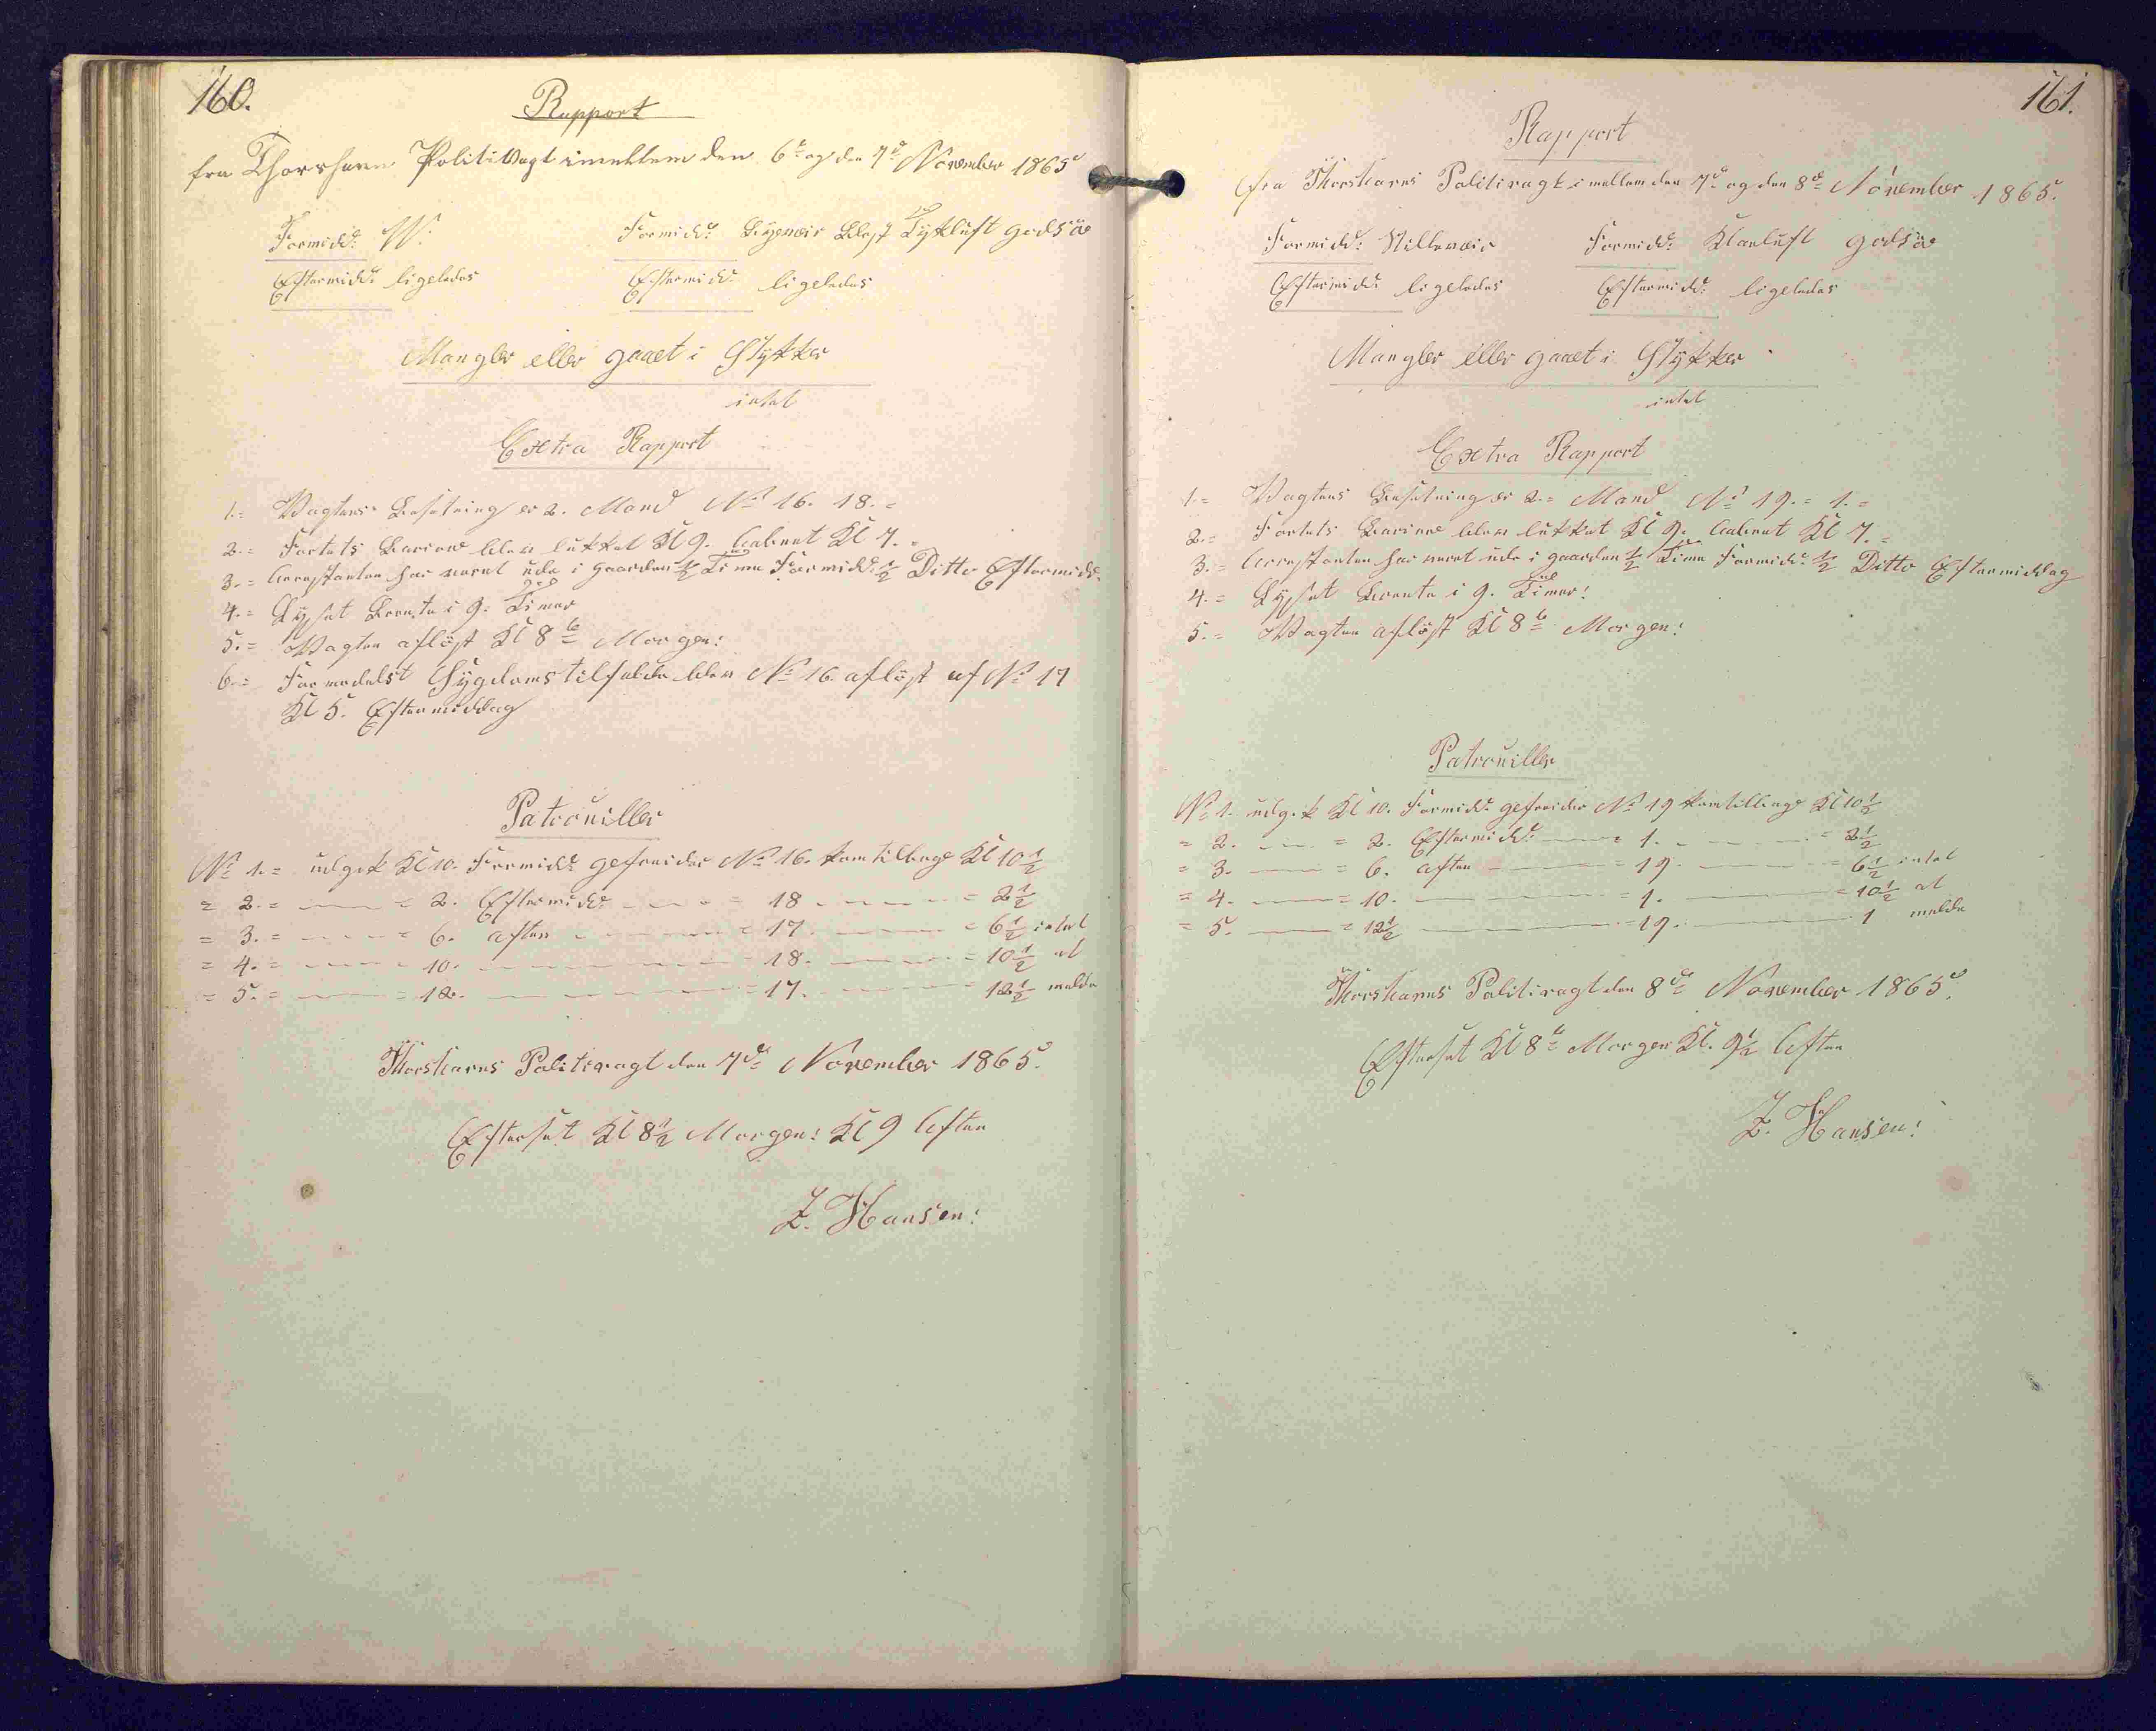 160.
Rapport
fra Thorshavn Politivagt imellem den 6te og den 7de November 1865
Formidd: W. Formidd: Byeveir Blæst Tykluft god Søe
Eftermidd: ligeledes Eftermidd: ligeledes
Mangler eller gaaet i Stykker
intet
Extra Rapport
1.= Vagtens Besætning er 2. Mand No 16. 18.=
2.= Fortets Barriere blev lukket Kl 9. aabnet Kl 7.=
3.= Arrestanten har været ude i Gaarden 1/2 Time Formidd: 1/2 Ditto Eftermidd:
4.= Lyset brente i 9. Timer
5.= Vagten afløst Kl 8te Morgen:
6.= Formedelst Sygdomstilfelde blev No 16 afløst af No 17
Kl 5. Eftermiddag
Patrouiller
No 1.= udgik Kl 10. Formidd: gefreider No 16. kom tilbage Kl 10 1/2
= 2.= — = 2. Eftermidd: — = 18 — = 2 1/2
= 3.= — = 6. aften — = 17. — = 6 1/2 intet
= 4.= — 10. — = 18. — = 10 1/2 at
= 5.= — = 12. — = 17. — 12 1/2 melde
Thorshavns Politivagt den 7de November 1865.
Efterset Kl 8 1/2 Morgen: Kl 9 Aften
Z. Hansen:
161.
Rapport
fra Thorshavns Politivagt imellem den 7de og den 8de November 1865.
Formidd: Stilleveir Formidd: Klarluft god Søe
Eftermidd: ligeledes Eftermidd: ligeledes
Mangler eller gaaet i Stykker
intet
Extra Rapport
1.= Vagtens Besætning er 2.= Mand No 19.= 1.=
2.= Fortets Bariere blev lukket Kl 9. aabnet Kl 7.=
3.= Arrestanten har været ude i gaarden 1/2 Time Formidd: 1/2 Ditto Eftermiddag
4.= Lyset brente i 9. Timer:
5.= Vagten afløst Kl 8te Morgen:
Patrouiller
No 1. udgik Kl 10. Formidd: gefreider No 19 kom tilbage Kl 10 1/2
= 2. — = 2. Eftermidd: — = 1. — = 2 1/2
= 3. — = 6. aften — 19. — = 6 1/2 intet
= 4. — = 10. — = 1. — = 10 1/2 at
= 5. — = 12 1/2 — = 19. — 1 melde
Thorshavns Politivagt den 8de November 1865.
Efterset Kl 8te Morgen Kl. 9 1/2 Aften
Z. Hansen: